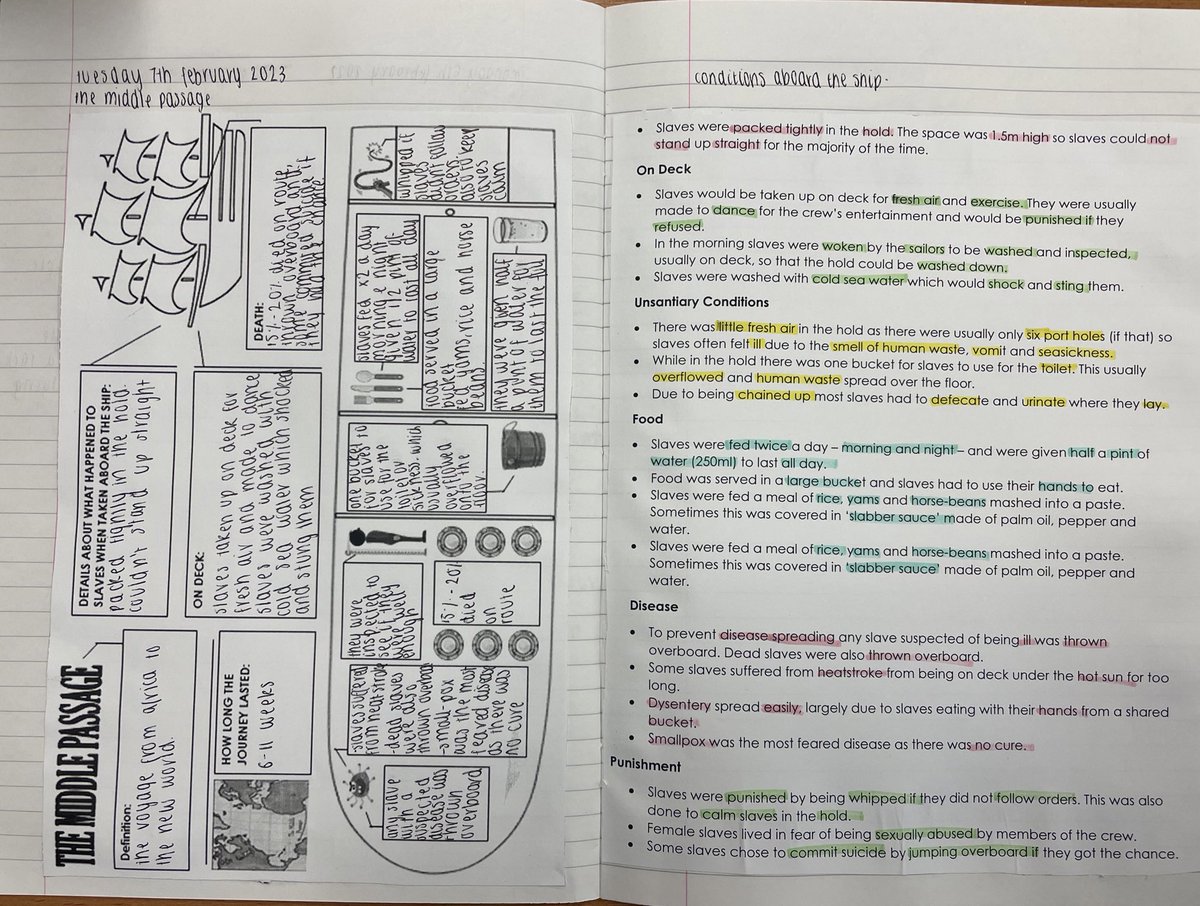 Tuesday 7th February 2023
The middle passage
THE MIDDLE PASSAGE
Definition:
the voyage from africa to
the new world.
HOW LONG THE
JOURNEY LASTED:
6-11 weeks
DETAILS ABOUT WHAT HAPPENED TO
SLAVES WHEN TAKEN ABOARD THE SHIP:
packed tightly in the hold.
couldn't stand up straight
ON DECK:
slaves taken up on deck for
fresh air and made to dance
slaves were washed with
cold sea water which shocked
and stung them
DEATH:
15%-20% died on route
thrown overboard and
some committed suicide if
they had the chance
any slave
with a
suspected
disease was
thrown
overboard
slaves suffered
from heatstroke
-dead slaves
were also
thrown overboard
-small-pox
was the most
feared disease
as there was
no cure
they were
inspected to
see if they
were well
enough
15%-20%
died
on
route
one bucket
for slaves to
use for the
toilet or
sickness which
usually
overflowed
onto the
floor.
slaves fed x2 a day
morning & night
given 1/2 pint of
water to last all day
food served in a large
bucket
fed yams, rice and horse
beans.
they were given half
a pint of water for
them to last the full
whipped if
slaves
didn't follow
orders
also to keep
slaves
calm
conditions aboard the ship.
• Slaves were packed tightly in the hold. The space was 1.5m high so slaves could not
stand up straight for the majority of the time.
On Deck
• Slaves would be taken up on deck for fresh air and exercise. They were usually
made to dance for the crew's entertainment and would be punished if they
refused.
• In the morning slaves were woken by the sailors to be washed and inspected,
usually on deck, so that the hold could be washed down.
• Slaves were washed with cold sea water which would shock and sting them.
Unsantiary Conditions
• There was little fresh air in the hold as there were usually only six port holes (if that) so
slaves often felt ill due to the smell of human waste, vomit and seasickness.
• While in the hold there was one bucket for slaves to use for the toilet. This usually
overflowed and human waste spread over the floor.
• Due to being chained up most slaves had to defecate and urinate where they lay.
Food
• Slaves were fed twice a day – morning and night – and were given half a pint of
water (250ml) to last all day.
• Food was served in a large bucket and slaves had to use their hands to eat.
• Slaves were fed a meal of rice, yams and horse-beans mashed into a paste.
Sometimes this was covered in 'slabber sauce' made of palm oil, pepper and
water.
• Slaves were fed a meal of rice, yams and horse-beans mashed into a paste.
Sometimes this was covered in 'slabber sauce' made of palm oil, pepper and
water.
Disease
• To prevent disease spreading any slave suspected of being ill was thrown
overboard. Dead slaves were also thrown overboard.
• Some slaves suffered from heatstroke from being on deck under the hot sun for too
long.
• Dysentery spread easily, largely due to slaves eating with their hands from a shared
bucket.
• Smallpox was the most feared disease as there was no cure.
Punishment
• Slaves were punished by being whipped if they did not follow orders. This was also
done to calm slaves in the hold.
• Female slaves lived in fear of being sexually abused by members of the crew.
• Some slaves chose to commit suicide by jumping overboard if they got the chance.